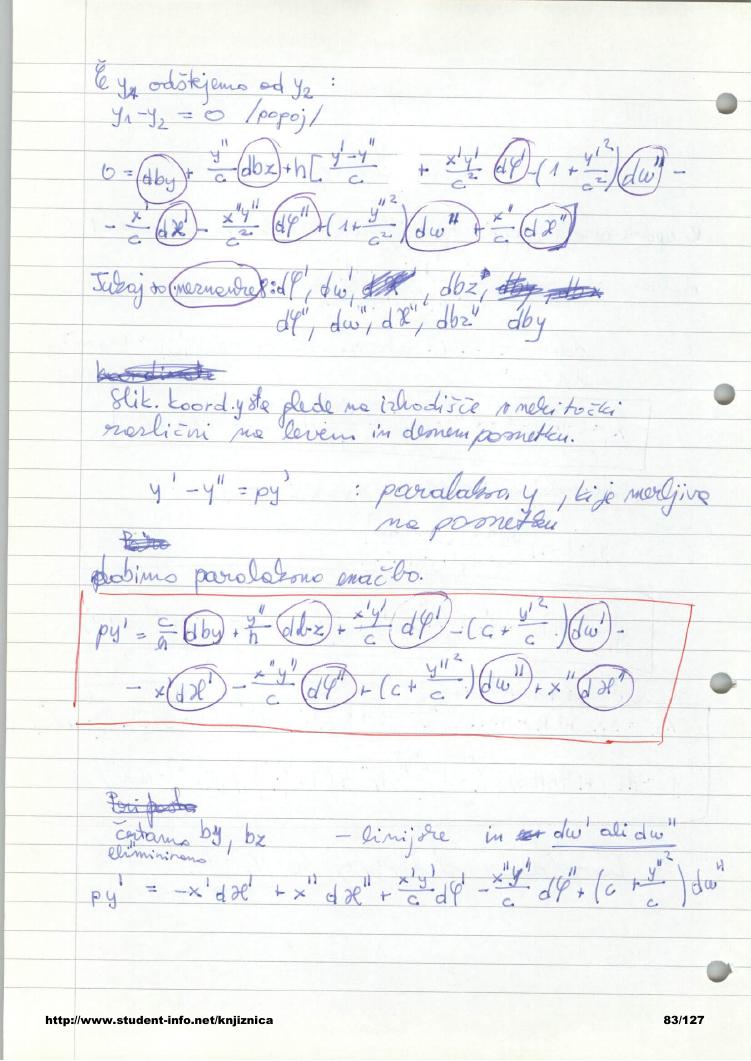 Č y₁ odštejemo od y₂ :
y₁-y₂ = 0 /pogoj/
0 = dby + y''/c dbz + h[ (y'-y'')/c + x'y'/c² dφ' - (1 + y'²/c²) dw'' -
- x'/c dϰ' - x''y''/c² dφ'' + (1 + y''²/c²) dw'' + x''/c dϰ'' ]
Tukaj so neznanke: dφ', dw', dbz',
dφ'', dw'', dϰ'', dbz'' dby
Slik. koord. y sta glede na izhodišče v neki točki
različni na levem in desnem posnetku.
y' - y'' = py' : paralaksa y, ki je merljiva
na posnetku
dobimo paralaksno enačbo.
py' = c/h dby + y''/h dbz + x'y'/c dφ' - (c + y'²/c) dw' -
- x' dϰ' - x''y''/c dφ'' + (c + y''²/c) dw'' + x'' dϰ''
by, bz - linijske in dw' ali dw''
eliminirano
py' = -x' dϰ' + x'' dϰ'' + x'y'/c dφ' - x''y''/c dφ'' + (c + y''²/c) dw''
http://www.student-info.net/knjiznica 83/127